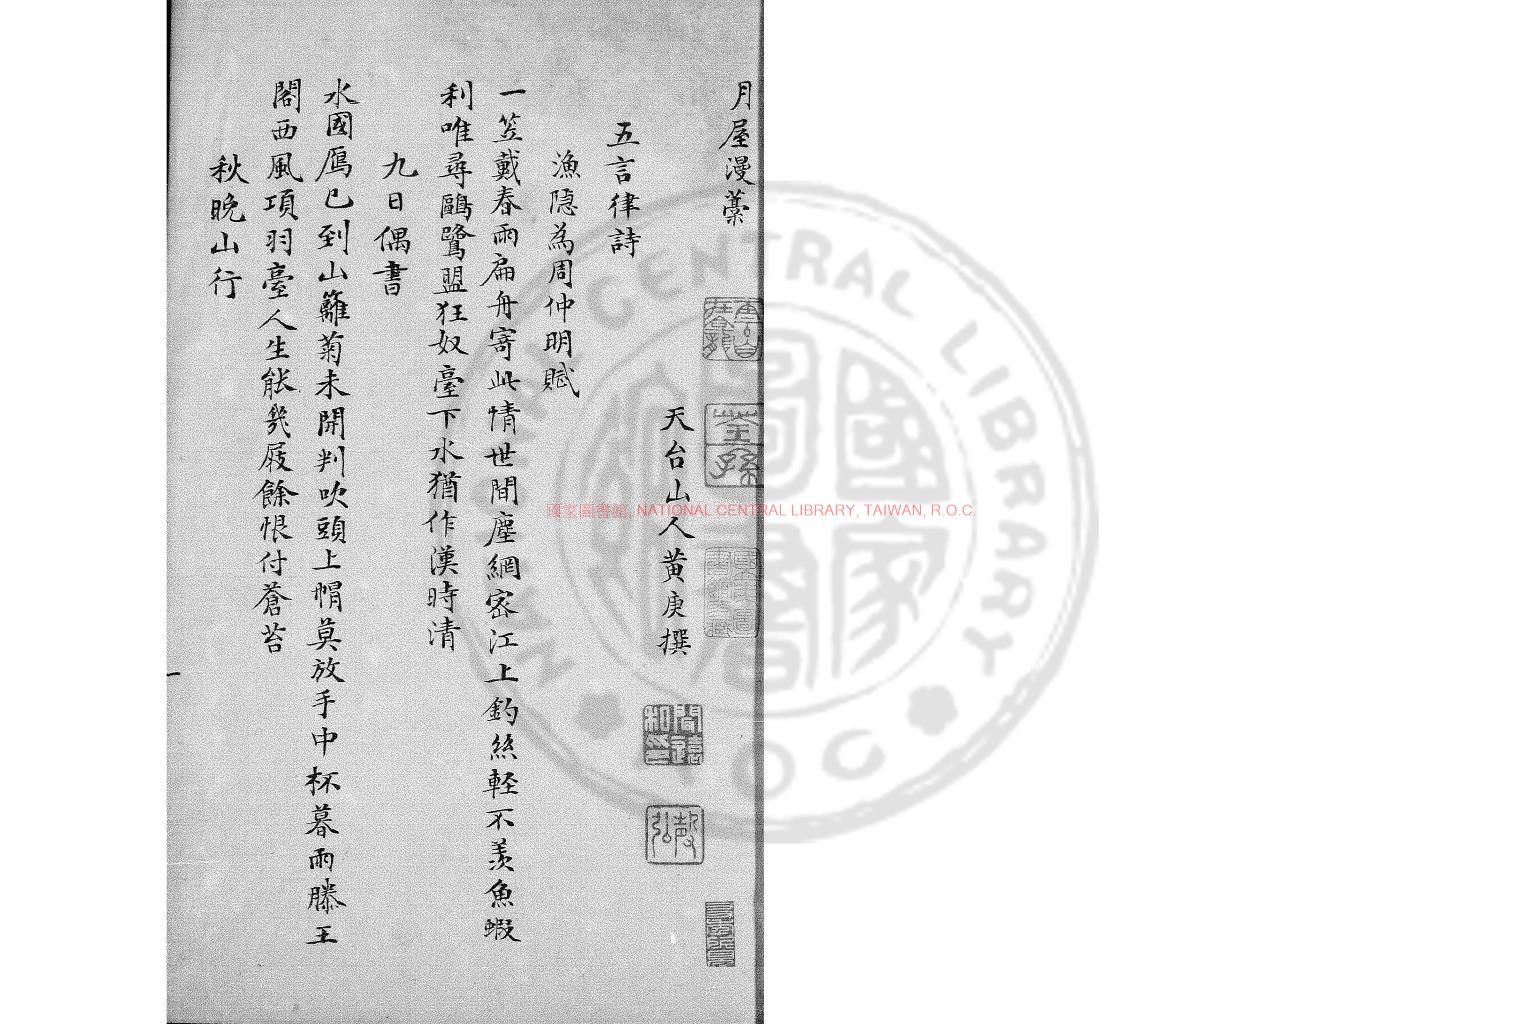 月屋漫藁
天台山人黄庚撰
五言律詩
漁隠為周仲明賦
一笠戴春雨扁舟寄此情世間塵網宻江上釣絲軽不羡魚蝦
利唯尋鷗鷺盟狂奴臺下水猶作漢時清
九日偶書
水國鴈已到山籬菊未開判吹頭上帽莫放手中杯暮雨滕王
閣西風項羽臺人生能幾屐餘恨付蒼苔
秋晚山行
國家圖書館, NATIONAL CENTRAL LIBRARY, TAIWAN, R.O.C.
NATIONAL CENTRAL LIBRARY
ROC